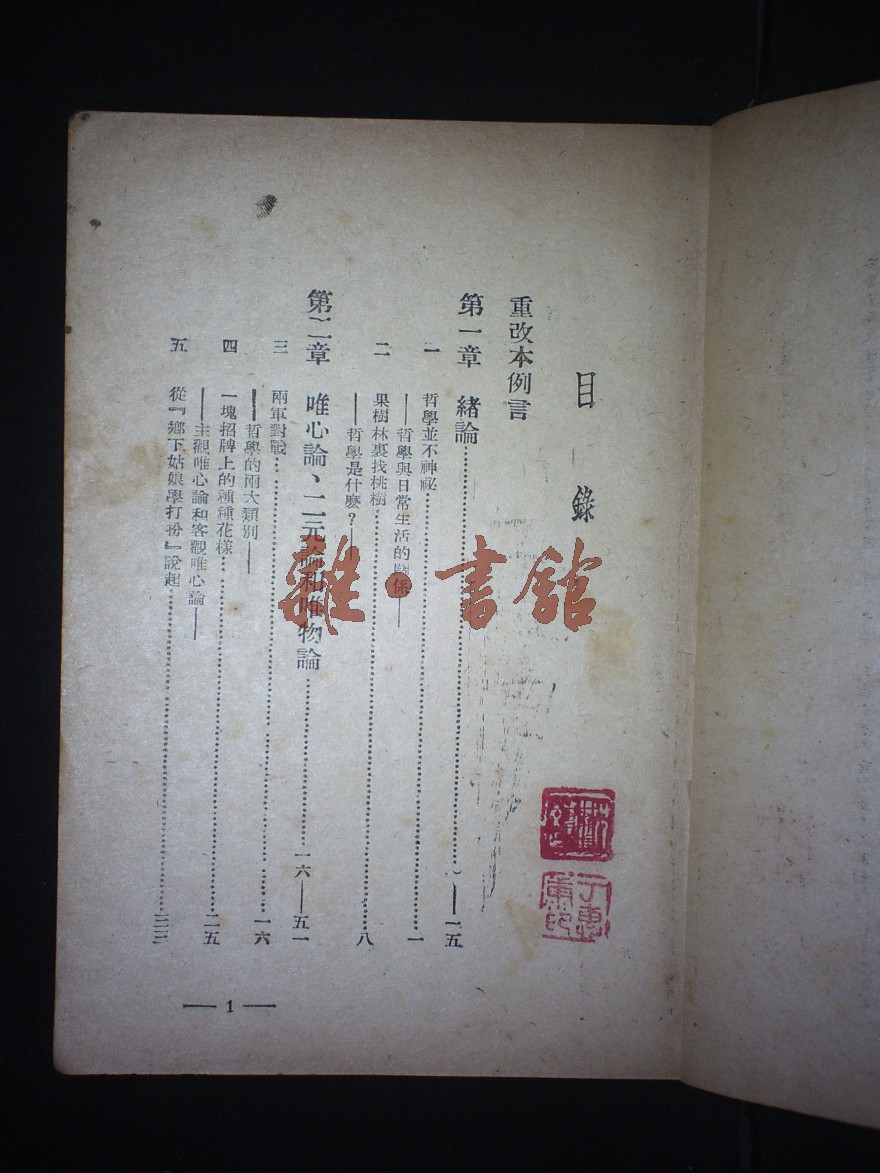 目錄
重改本例言
第一章 緒論……一五
一 哲學並不神祕……一
——哲學與日常生活的關係——
二 果樹林裏找桃樹……八
——哲學是什麼？——
第二章 唯心論、二元論和唯物論……一六——五一
三 兩軍對戰……一六
——哲學的兩大類別——
四 一塊招牌上的種種花樣……二五
——主觀唯心論和客觀唯心論——
五 從『鄉下姑娘學打扮』說起……三三
— 1 —
雜·書舘